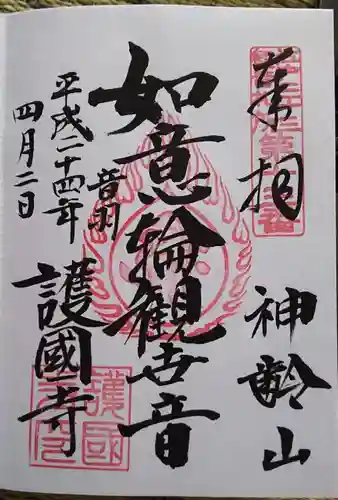 奉拝
神齢山
如意輪観世音
音羽
護國寺
平成二十四年
四月二日
護國